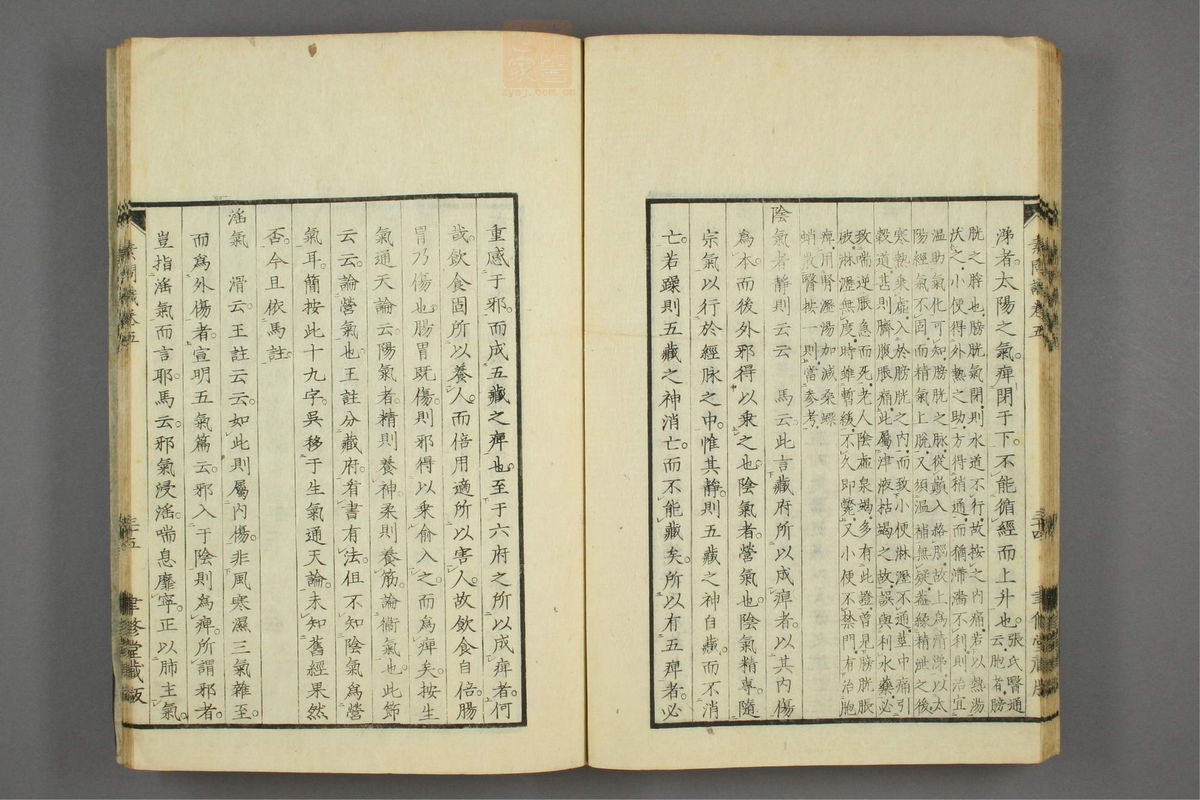 涕者太陽之氣痺閉于下不能循經而上升也張氏醫通
云胞者膀
胱之脬也膀胱氣閉則水道不行故按之內痛若以熱湯
沃之小便得外熱之助方得稍通而猶滯濇不利則治宜
温助氣化可知膀胱之脉從巔入絡腦故上為清涕以太
陽經氣不固而精氣上脫又須温補無疑蓋
寒熱乘虛入於膀胱之內而致小便淋瀝不通莖中痛引
穀道甚則臍腹脹痛此屬津液枯竭之故誤與利水藥必
致喘逆脹急而死老人陰虛泉竭多有此證曾見膀胱脹
破淋瀝無度時暫緩不久即斃又小便不禁門有治胞
痺用腎瀝湯加減桑螵
蛸散醫按一則當參考
陰氣者靜則云云 馬云此言藏府所以成痺者以其內傷
為本而後外邪得以乘之也陰氣者營氣也陰氣精專隨
宗氣以行於經脉之中惟其靜則五藏之神自藏而不消
亡若躁則五藏之神消亡而不能藏矣所以有五痺者必
素問識卷五
三十四
重感于邪而成五藏之痺也至于六府之所以成痺者何
哉飲食固所以養人而倍用適所以害人故飲食自倍腸
胃乃傷也腸胃既傷則邪得以乘俞入之而為痺矣按生
氣通天論云陽氣者精則養神柔則養筋論衞氣也此節
云云論營氣也王註分藏府看書有法但不知陰氣為營
氣耳簡按此十九字吳移于生氣通天論未知舊經果然
否今且依馬註
淫氣 滑云王註云云如此則屬內傷非風寒濕三氣雜至
而為外傷者宣明五氣篇云邪入于陰則為痺所謂邪者
豈指淫氣而言耶馬云邪氣浸淫喘息靡寧正以肺主氣
素問識卷五
三十五
聿修堂藏版
zysj.com.cn